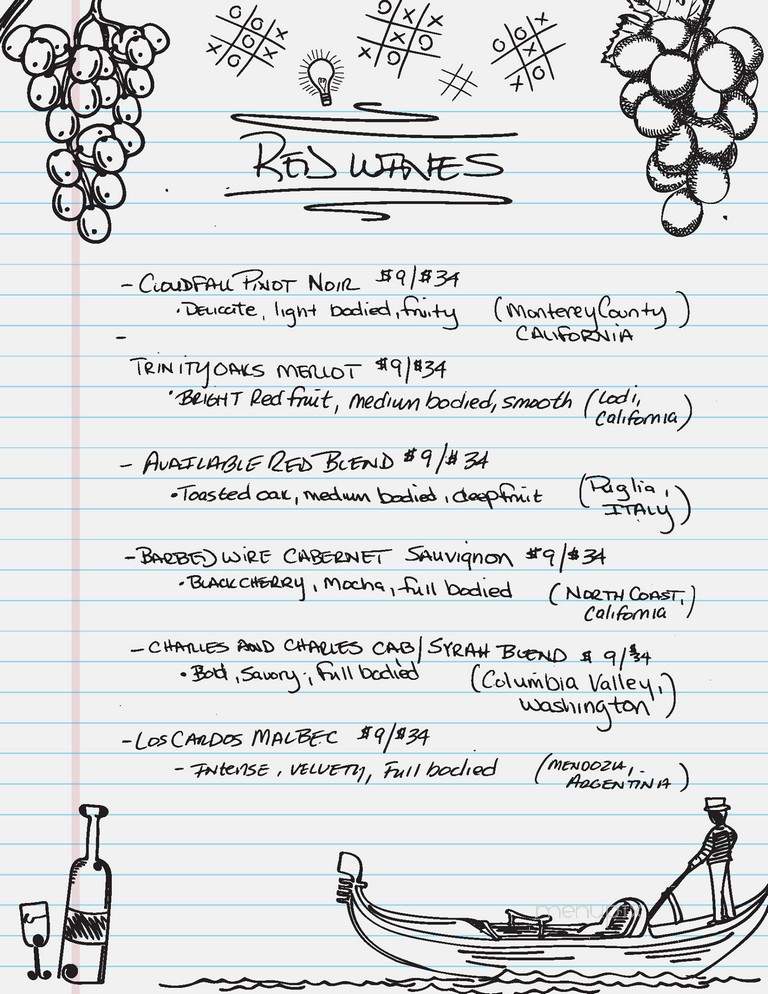 RED WINES
- CLOUDFALL PINOT NOIR $9/$34
• DELICATE, light bodied, fruity (Monterey County)
CALIFORNIA
-
TRINITY OAKS MERLOT $9/$34
• BRIGHT Red fruit, medium bodied, smooth (Lodi,
California)
- AVAILABLE RED BLEND $9/$34
• Toasted oak, medium bodied, deep fruit (Puglia,
ITALY)
- BARBED WIRE CABERNET Sauvignon $9/$34
• BLACK CHERRY, Mocha, full bodied (NORTH COAST,)
California
- CHARLES AND CHARLES CAB/SYRAH BLEND $9/$34
• Bold, Savory, Full bodied (Columbia Valley,)
Washington
- LOS CARDOS MALBEC $9/$34
- INTENSE, VELVETY, Full bodied (MENDOZA,
ARGENTINA)